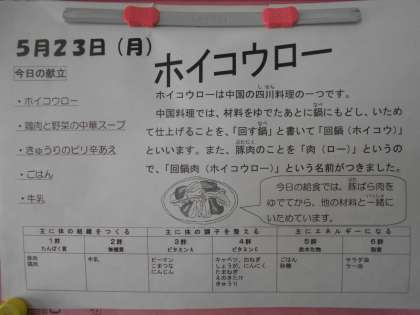 5月23日(月)
今日の献立
・ホイコウロー
・鶏肉と野菜の中華スープ
・きゅうりのピリ辛あえ
・ごはん
・牛乳
ホイコウロー
ホイコウローは中国の四川料理の一つです。
中国料理では、材料をゆでたあとに鍋にもどし、いため
て仕上げることを、「回す鍋」と書いて「回鍋(ホイコウ)」
といいます。また、豚肉のことを「肉(ロー)」というの
で、「回鍋肉(ホイコウロー)」という名前がつきました。
今日の給食では、豚ばら肉を
ゆでてから、他の材料と一緒に
いためています。
主に体の組織をつくる
主に体の調子を整える
主にエネルギーになる
1群
2群
3群
4群
5群
6群
たんぱく質
無機質
ビタミンA
ビタミンC
炭水化物
脂質
豚肉
鶏肉
牛乳
ピーマン
こまつな
にんじん
キャベツ、白ねぎ
しょうが、にんにく
たまねぎ
えのきたけ
きゅうり
ごはん
砂糖
サラダ油
ラー油